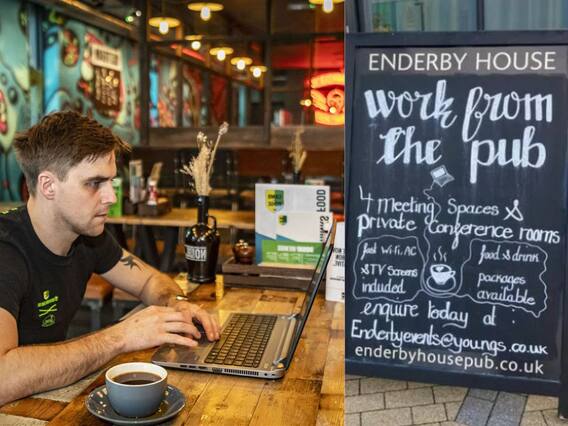 FOOD
ENDERBY HOUSE
work from
the pub
4 meeting spaces &
private conference rooms
fast WiFi, AC
& TV Screens
included
food & drink
packages
available
enquire today at :
Enderbyevents@youngs.co.uk
enderbyhousepub.co.uk